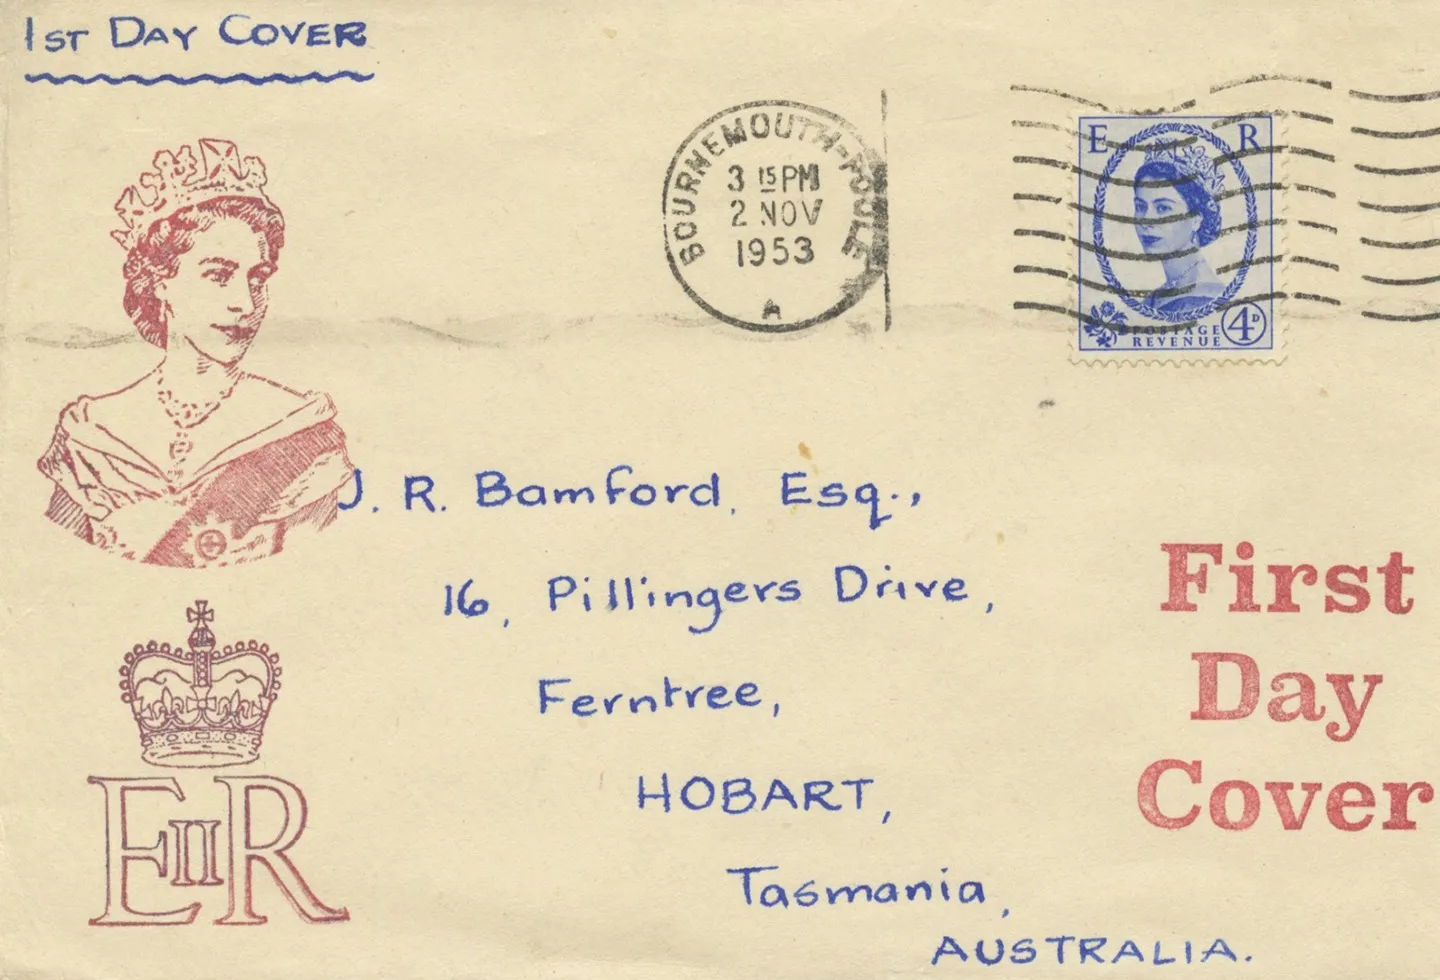 1ST DAY COVER
BOURNEMOUTH-POOLE
3 15 PM
2 NOV
1953
A
E R
POSTAGE
REVENUE
4D
J. R. Bamford, Esq.,
16, Pillingers Drive,
Ferntree,
HOBART,
Tasmania,
AUSTRALIA.
First
Day
Cover
EIIR